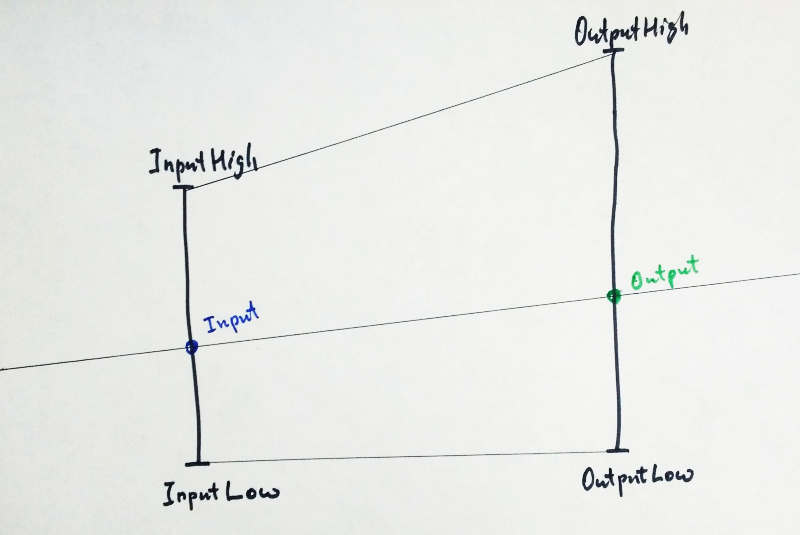 OutputHigh
InputHigh
Output
Input
OutputLow
InputLow